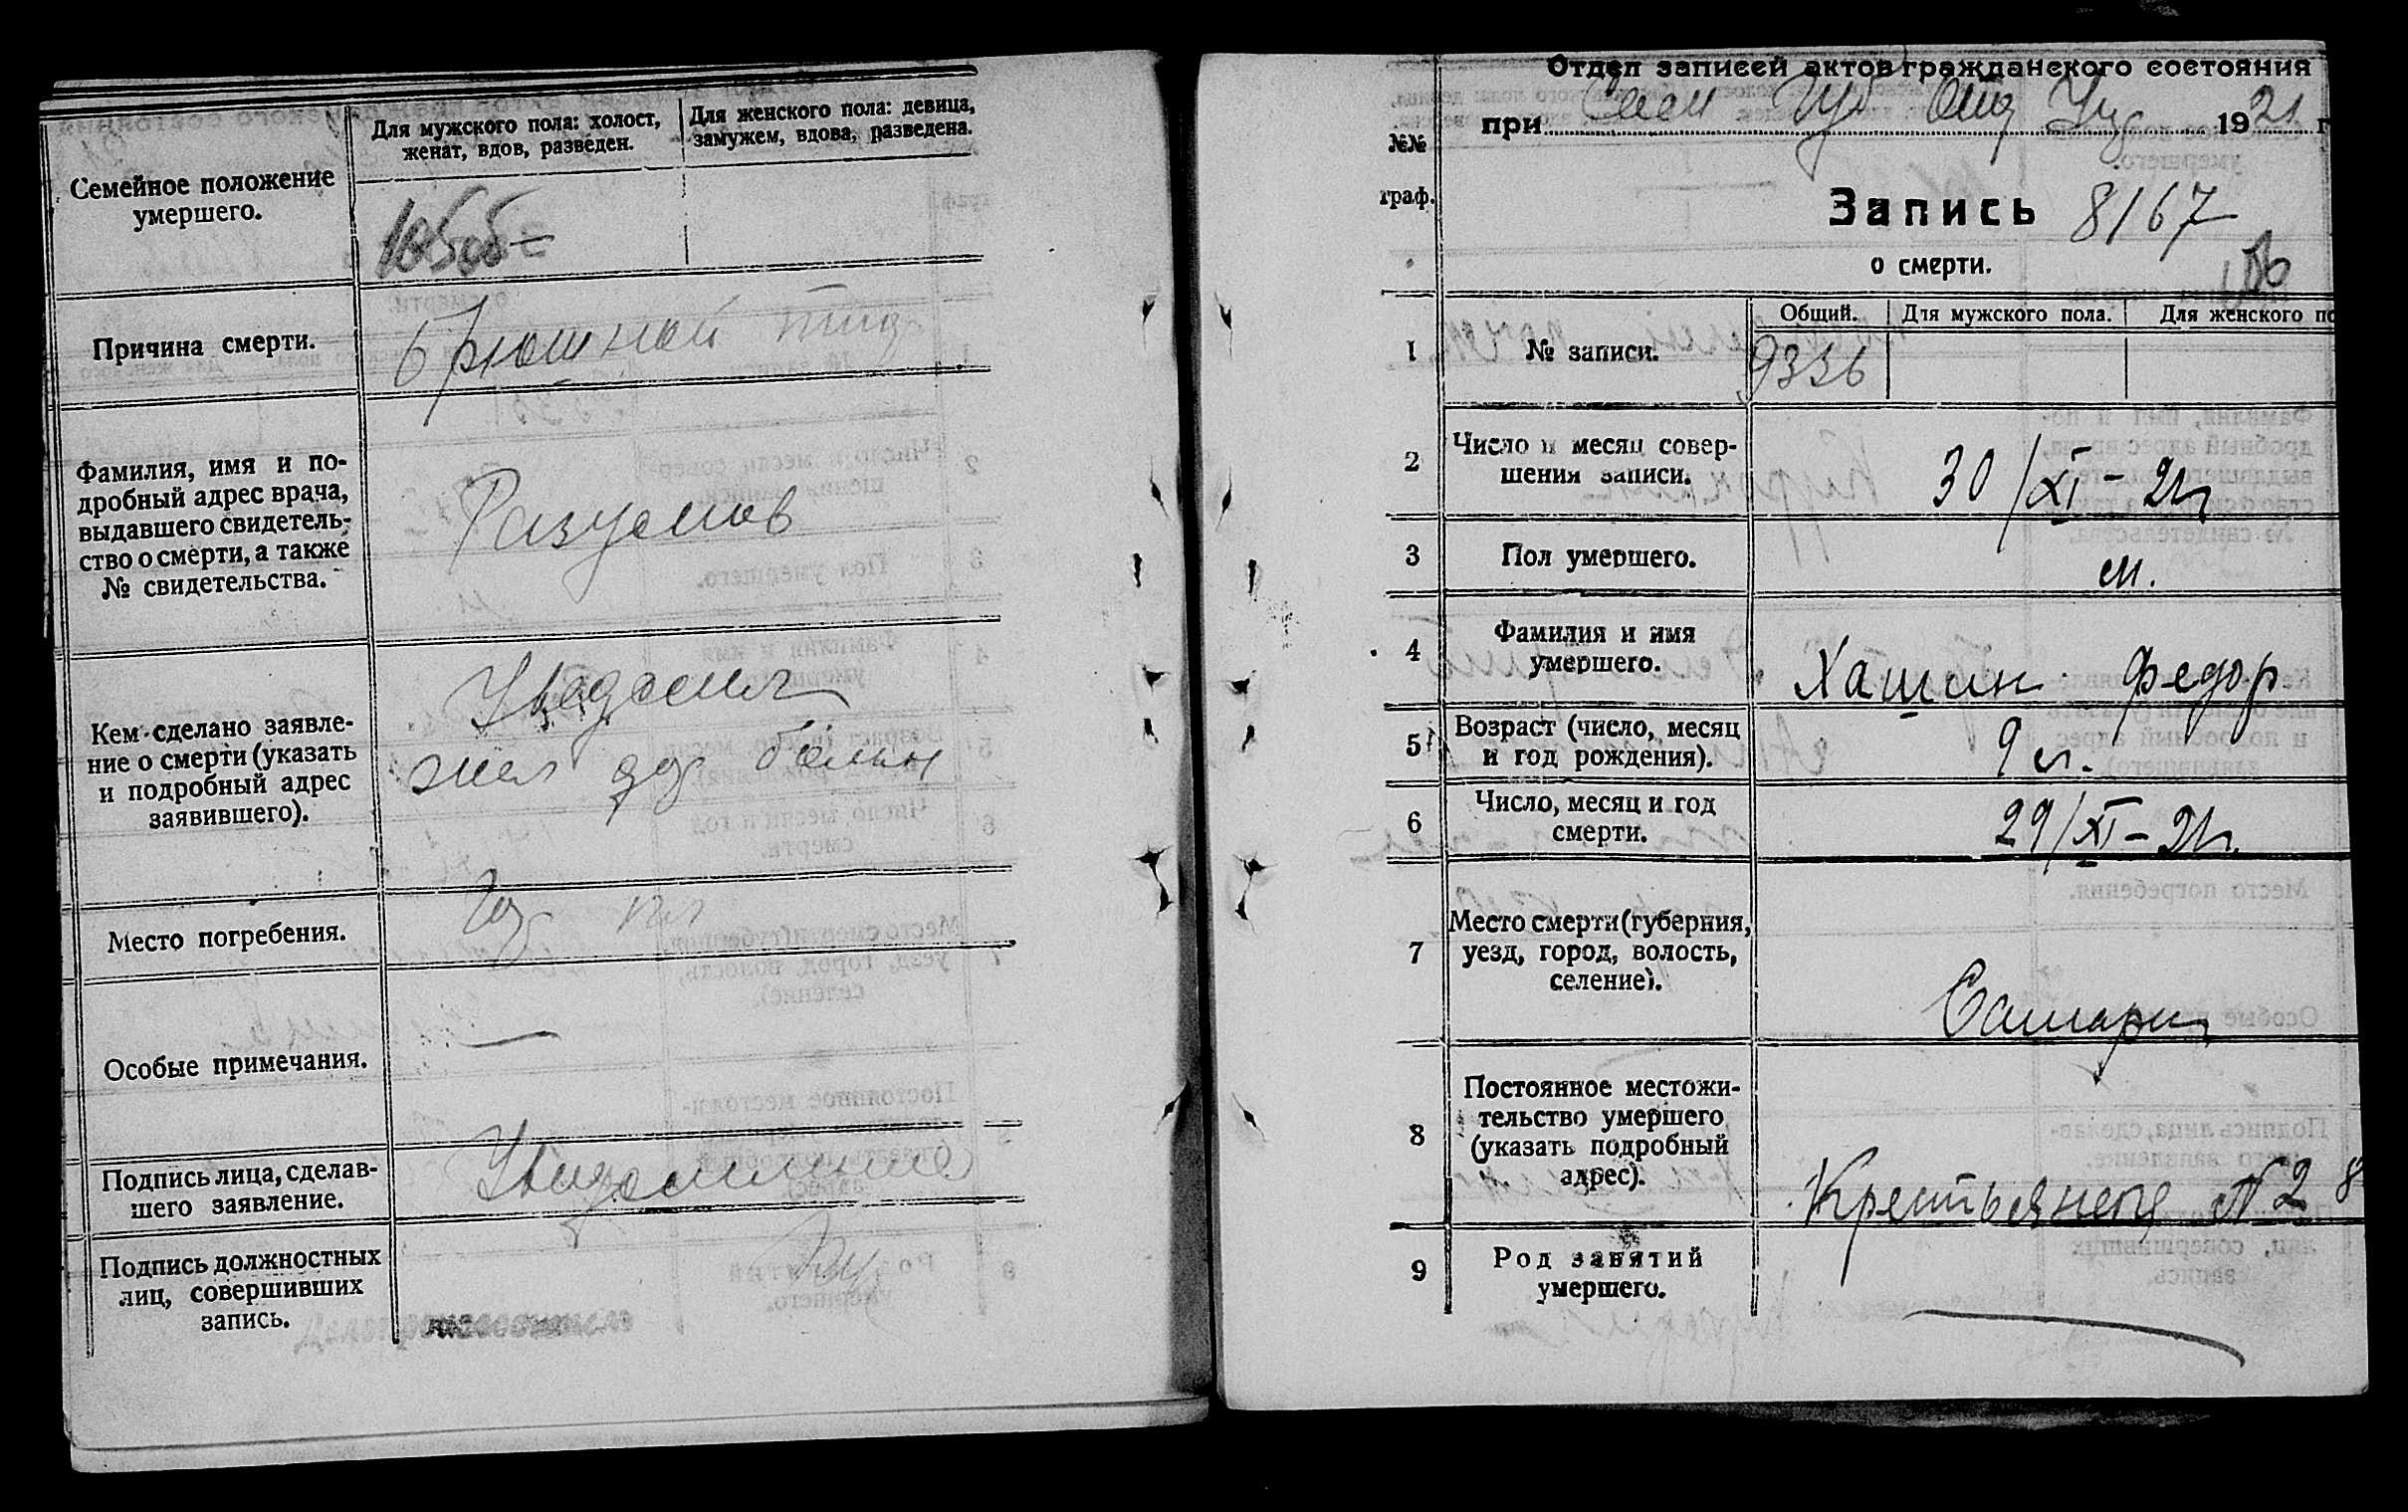 Семейное положение
умершего.
Для мужского пола: холост,
женат, вдов, разведен.
Для женского пола: девица,
замужем, вдова, разведена.
Причина смерти.
Брюшной тиф
Фамилия, имя и по-
дробный адрес врача,
выдавшего свидетель-
ство о смерти, а также
№ свидетельства.
Разумов
Кем сделано заявле-
ние о смерти (указать
и подробный адрес
заявившего).
жел дор больн
Место погребения.
Особые примечания.
—
Подпись лица, сделав-
шего заявление.
Подпись должностных
лиц, совершивших
запись.
Отдел записей актов гражданского состояния
при Сам Губ Отд Упр 1921 г
№№
граф.
Запись 8167
о смерти.
Общий. Для мужского пола. Для женского по
1 № записи. 9336
2 Число и месяц совер-
шения записи.
30/XI-21г
3 Пол умершего. м.
4 Фамилия и имя
умершего.
Хашин Федор
5 Возраст (число, месяц
и год рождения).
9 л.
6 Число, месяц и год
смерти.
29/XI-21г.
7 Место смерти (губерния,
уезд, город, волость,
селение).
Самара
8 Постоянное местожи-
тельство умершего
(указать подробный
адрес).
№ 28
9 Род занятий
умершего.
—